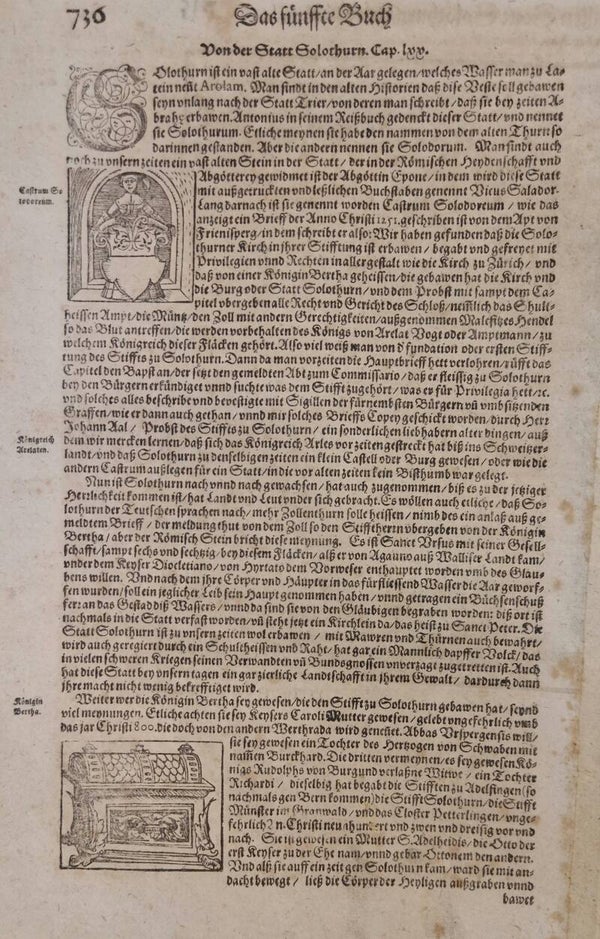 736
Das fünffte Buch
Von der Statt Solothurn. Cap. lxx.
SOlothurn ist ein vast alte Statt/an der Aar gelegen/welches Wasser man zu La-
tein neñt Arolam. Man findt in den alten Historien daß dise Veste soll gebawen
seyn vnlang nach der Statt Trier/von deren man schreibt/daß sie bey zeiten A-
brahę erbawen. Antonius in seinem Reißbuch gedenckt dieser Statt/vnd nennet
sie Solothurum. Etliche meynen sie habe den nammen von dem alten Thurn so
darinnen gestanden. Aber die andern nennen sie Solodorum. Man findt auch
noch zu vnsern zeiten ein vast alten Stein in der Statt/der in der Römischen Heydenschafft vnd
Castrum So-
lodoreum.
Abgötterey gewidmet ist der Abgöttin Epone/in dem wird diese Statt
mit außgetruckten vnd leßlichen Buchstaben genennt Vicus Salador-
Lang darnach ist sie genennt worden Castrum Solodoreum/wie das
anzeigt ein Brieff der Anno Christi 1251. geschriben ist von dem Apt von
Friensperg/in dem schreibt er also: Wir haben gefunden daß die Solo-
thurner Kirch in jhrer Stifftung ist erbawen/begabt vnd gefreyet mit
Privilegien vnnd Rechten in allergestalt wie die Kirch zu Zürich/vnd
daß von einer Königin Bertha geheissen/die gebawen hat die Kirch vnd
die Burg oder Statt Solothurn/vnd dem Probst mit sampt dem Ca-
pitel vbergeben alle Recht vnd Gericht des Schloß/nemlich das Schult-
heissen Ampt/die Müntz/den Zoll mit andern Gerechtigkeiten/außgenommen Malefitzes Hendel
so das Blut antreffen/die werden vorbehalten des Königs von Arelat Vogt oder Amptmann/zu
welchem Königreich dieser Flächen gehört. Also viel weiß man von d' fundation oder ersten Stiff-
tung des Stiffts zu Solothurn. Dann da man vorzeiten die Hauptbrieff hett verlohren/rüfft das
Capitel den Bapst an/der setzt den gemeldten Abt zum Commissario/daß er fleissig zu Solothurn
bey den Bürgern erkündiget vnnd suchte was dem Stifft zugehört/was er für Privilegia hett/ꝛc.
vnd solches alles beschribe vnd bevestigte mit Sigillen der fürnembsten Bürgern vñ vmbsitzenden
Graffen/wie er dann auch gethan/vnnd mir solches Brieffs Copey geschickt worden/durch Herr
Johann Aal/Probst des Stiffts zu Solothurn/ein sonderlichen liebhabern alter dingen/auß
Königreich
Arelaten.
dem wir mercken lernen/daß sich das Königreich Arles vor zeiten gestreckt hat biß ins Schweitzer-
landt/vnd daß Solothurn zu denselbigen zeiten ein klein Castell oder Burg gewesen/oder wie die
andern Castrum außlegen für ein Statt/in die vor alten zeiten kein Bisthumb war gelegt.
Nun ist Solothurn nach vnnd nach gewachsen/hat auch zugenommen/biß es zu der jetziger
Herrlichkeit kommen ist/hat Landt vnd Leut vnder sich gebracht. Es wöllen auch etliche/daß So-
lothurn der Teutschen sprachen nach/mehr Zollenthurn solle heissen/nimb des ein anlaß auß ge-
meldtem Brieff/der meldung thut von dem Zoll so den Stifftherrn vbergeben von der Königin
Bertha/aber der Römisch Stein bricht diese meynung. Es ist Sanct Vrsus mit seiner Gesell-
schafft/sampt sechs vnd sechtzig/bey diesem Fläcken/alß er von Agauno auß Walliser Landt kam/
vnder dem Keyser Diocletiano/von Hyrtato dem Vorweser enthauptet worden vmb des Glau-
bens willen. Vnd nach dem jhre Cörper vnd Häupter in das fürfliessend Wasser die Aar geworf-
fen wurden/soll ein jeglicher Leib sein Haupt genommen haben/vnnd getragen ein Büchsenschuß
ferr an das Gestad diß Wassers/vnnd da sind sie von den Gläubigen begraben worden: diß ort ist
nachmals in die Statt verfast worden/vñ steht jetzt ein Kirchlein da/das heist zu Sanct Peter. Die
Statt Solothurn ist zu vnsern zeiten wol erbawen/mit Mawren vnd Thürnen auch bewahrt/
wird auch geregiert durch ein Schultheissen vnd Raht/hat gar ein Mannlich dapffer Volck/das
in vielen schweren Kriegen seinen Verwandten vñ Bundsgnossen vnverzagt zugetretten ist. Auch
hat diese Statt bey vnsern tagen ein gar zierliche Landschafft in jhrem Gewalt/dardurch dann
jhre macht nicht wenig bekrefftiget wird.
Königin
Bertha.
Weiter wer die Königin Bertha sey gewesen/die den Stifft zu Solothurn gebawen hat/seynd
viel meynungen. Etliche achten sie sey Keysers Caroli Mutter gewesen/gelebt vngefehrlich vmb
das jar Christi 800. die doch von den andern Werthrada wird geneñet. Abbas Vrspergensis will/
sie sey gewesen ein Tochter des Hertzogen von Schwaben mit
nammen Burckhard. Die dritten vermeynen/es sey gewesen Kö-
nigs Rudolphs von Burgund verlaßne Witwe/ein Tochter
Richardi/dieselbig hat begabt die Stifften zu Adelfingen (so
nachmals gen Bern kommen) die Stifft Solothurn/die Stifft
Münster im Granwald/vnd das Closter Petterlingen/vnge-
fehrlich An. Christi neun hundert vnd zwen vnd dreissig vor vnd
nach. Sie ist gewesen ein Mutter S. Adelheidis/die Otto der
erst Keyser zu der Ehe nam/vnnd gebar Ottonem den andern.
Vnd alß sie auff ein zeit gen Solothurn kam/ward sie mit an-
dacht bewegt/ließ die Cörper der Heyligen außgraben vnnd
bawet